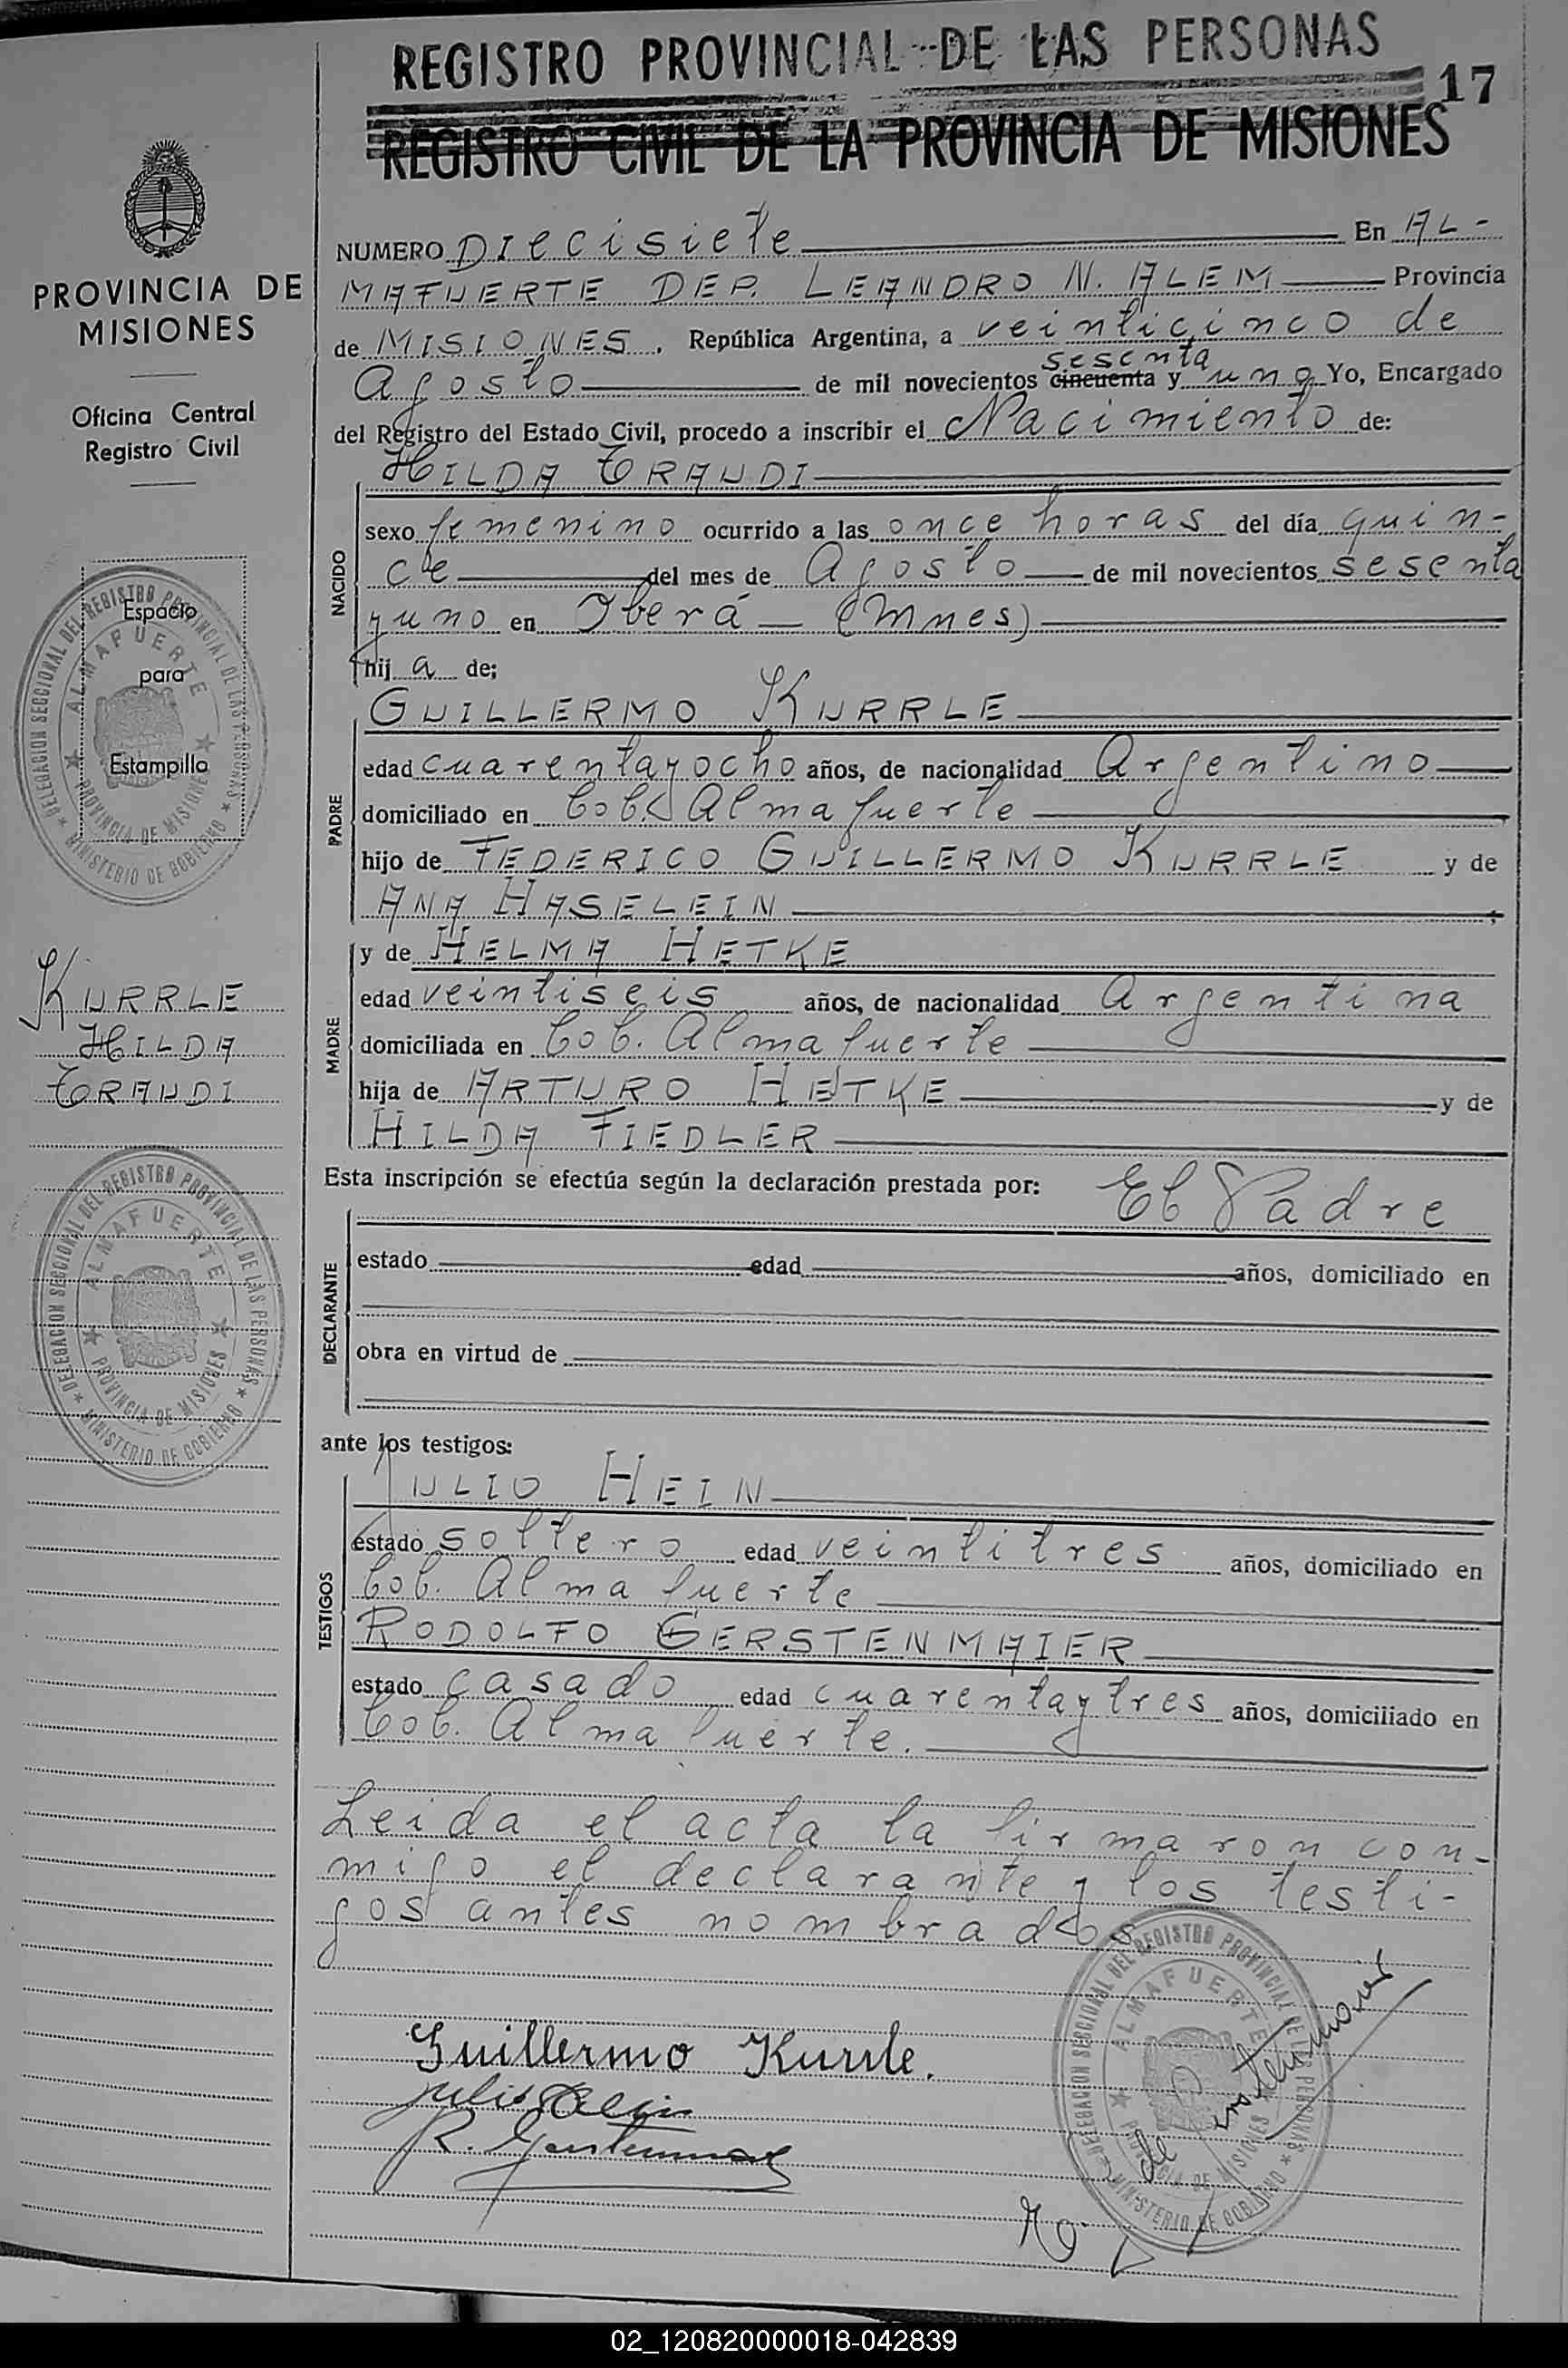 REGISTRO PROVINCIAL DE LAS PERSONAS
17
REGISTRO CIVIL DE LA PROVINCIA DE MISIONES
PROVINCIA DE
MISIONES
Oficina Central
Registro Civil
NUMERO DIECISIETE En AL-
MAFUERTE DEP. LEANDRO N. ALEM Provincia
de MISIONES, República Argentina, a veinticinco de
sesenta
Agosto de mil novecientos cincuenta y uno Yo, Encargado
del Registro del Estado Civil, procedo a inscribir el Nacimiento de:
HILDA TRAUDI
NACIDO
sexo femenino ocurrido a las once horas del día quin-
ce del mes de Agosto de mil novecientos sesenta
y uno en Oberá (Mnes)
hij a de;
PADRE
GUILLERMO KURRLE
edad cuarentayocho años, de nacionalidad Argentino
domiciliado en Col. Almafuerte
hijo de FEDERICO GUILLERMO KURRLE y de
ANA HASELEIN ;
MADRE
y de HELMA HETKE
edad veintiseis años, de nacionalidad Argentina
domiciliada en Col. Almafuerte
hija de ARTURO HETKE y de
HILDA FIEDLER
Esta inscripción se efectúa según la declaración prestada por: El Padre
DECLARANTE
estado edad años, domiciliado en
obra en virtud de
ante los testigos:
TESTIGOS
JULIO HEIN
estado soltero edad veintitres años, domiciliado en
Col. Almafuerte
RODOLFO GERSTENMAIER
estado casado edad cuarentaytres años, domiciliado en
Col. Almafuerte.
Leida el acta la firmaron con-
migo el declarante y los testi-
gos antes nombrados
Guillermo Kurrle.
Julio Hein
R. Gerstenmaier
Espacio
para
Estampilla
DELEGACION SECCIONAL DEL REGISTRO PROVINCIAL DE LAS PERSONAS
ALMAFUERTE
PROVINCIA DE MISIONES
MINISTERIO DE GOBIERNO
KURRLE
HILDA
TRAUDI
DELEGACION SECCIONAL DEL REGISTRO PROVINCIAL DE LAS PERSONAS
ALMAFUERTE
PROVINCIA DE MISIONES
MINISTERIO DE GOBIERNO
DELEGACION SECCIONAL DEL REGISTRO PROVINCIAL DE LAS PERSONAS
ALMAFUERTE
PROVINCIA DE MISIONES
MINISTERIO DE GOBIERNO
02_120820000018-042839